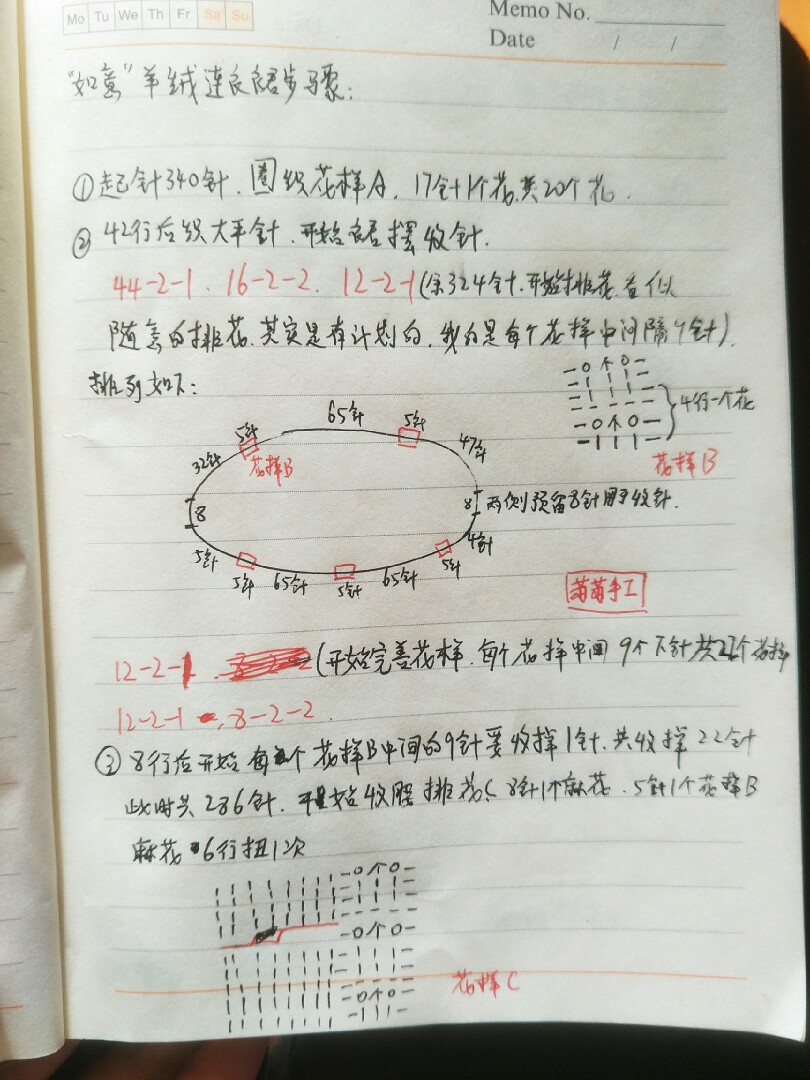 Mo Tu We Th Fr Sa Su
Memo No.
Date / /
"如意"羊绒连衣裙步骤:
①起针340针.圈织花样A.17针1个花.共20个花.
②42行后织大平针.开始裙摆收针.
44-2-1.16-2-2.12-2-1(余324针.开始排花.看似
随意的排花.其实是有计划的.我的是每个花样中间隔9针).
排列如下:
65针
5针
5针
47针
32针
花样B
4行一个花
花样B
8
8
两侧预留8针用于收针.
4针
5针
5针
65针
5针
65针
5针
萄萄手工
12-2-1.(开始完善花样.每个花样中间9个下针共22个花样
12-2-1,8-2-2.
③8行后开始每个花样B中间的9针要收掉1针.共收掉22针
此时共286针.开始收腰排花C 8针1个麻花.5针1个花样B
麻花6行扭1次
花样C